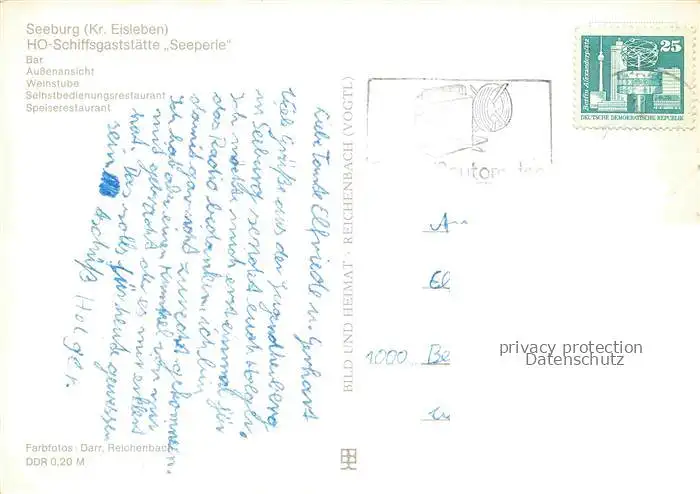 Seeburg (Kr. Eisleben)
HO-Schiffsgaststätte „Seeperle"
Bar
Außenansicht
Weinstube
Selbstbedienungsrestaurant
Speiserestaurant
25
Berlin, Alexanderplatz
DEUTSCHE DEMOKRATISCHE REPUBLIK
Liebe Tante Elfriede u. Gerhart
Viele Grüße aus der Jugendherberg
in Seeburg sendet euch Holger.
Ich möchte mich erst einmal für
das Radio bedanken ich bin
damit gar nicht zurecht gekommen.
Ich hab aber einen Kumpel der
mit gebracht der es mir erklärt
hat. Das solls für heute gewesen
sein
tschüß Holger.
BILD UND HEIMAT · REICHENBACH (VOGTL)
An
El
1000 Be
privacy protection
Datenschutz
Farbfotos: Darr, Reichenbach
DDR 0,20 M